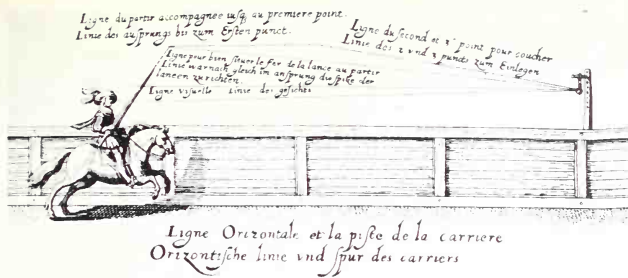 Ligne du partir accompagnee iusq. au premiere point.
Linie des ausprungs bis zum Ersten punct.
Ligne du second et 3e point pour coucher
Linie des 2 vnd 3 puncts zum Einlegen
Ligne pour bien sleuer le fer de la lance au partir
Linie warnach gleich im ansprung die spitze der
lancen zurichten.
Ligne visuelle Linie des gesichts
Ligne Orizontale et la piste de la carriere
Orizontische linie vnd spur des carriers